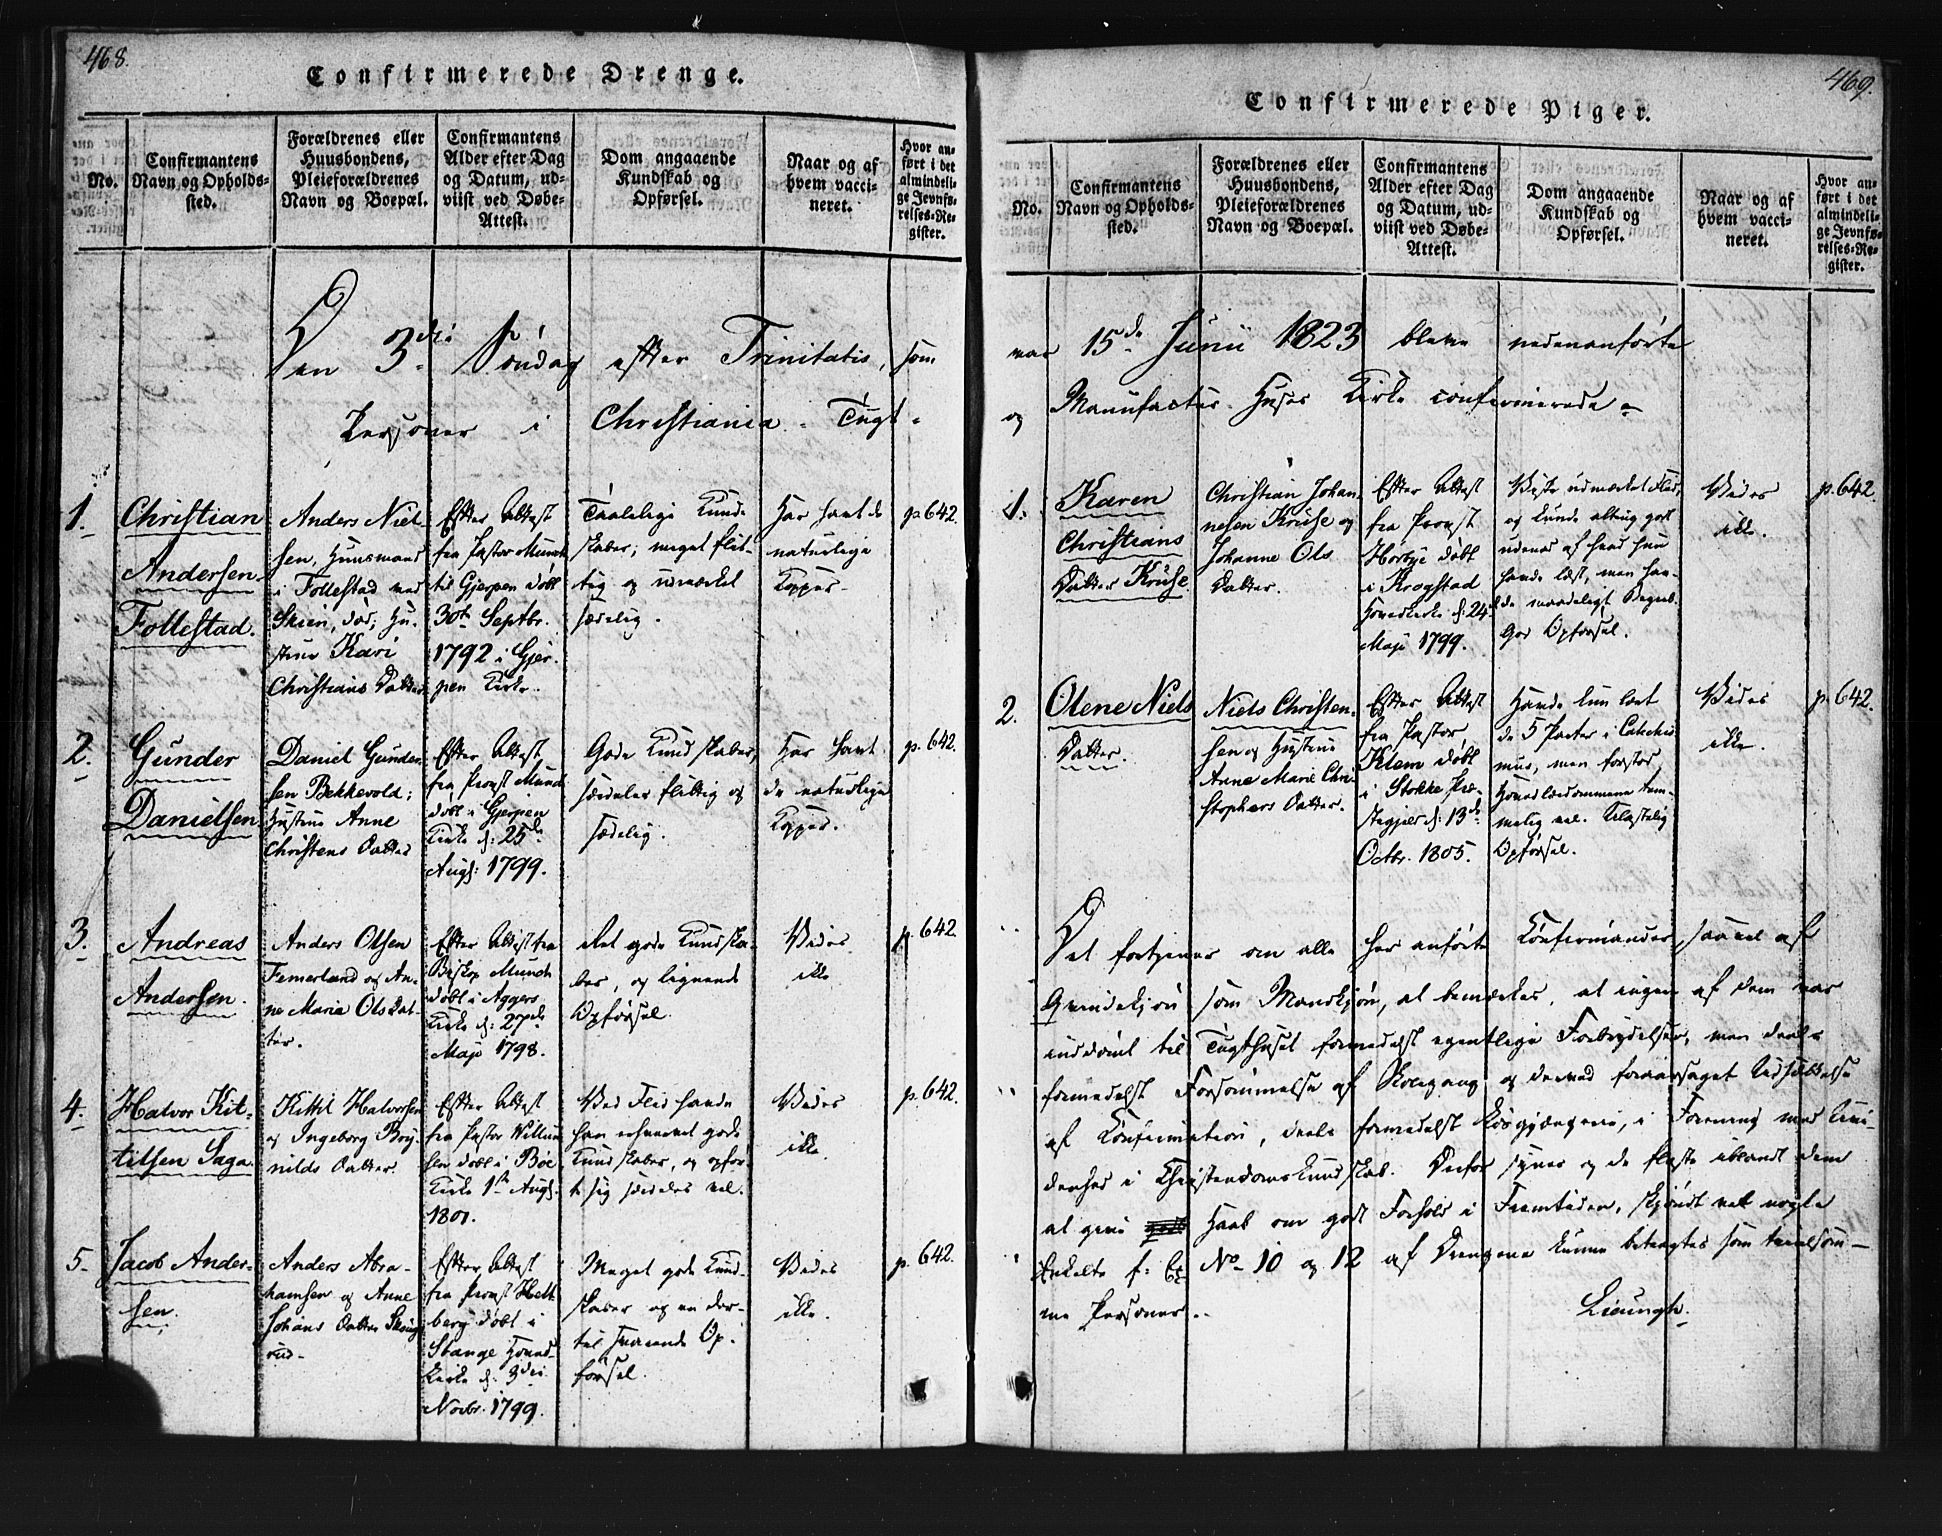 468.
Confirmerede Drenge.
No.
Confirmantens
Navn og Opholds-
sted.
Forældrenes eller
Huusbondens,
Pleieforældrenes
Navn og Boepæl.
Confirmantens
Alder efter Dag
og Datum, ud-
viist ved Døbe-
Attest.
Dom angaaende
Kundskab og
Opførsel.
Naar og af
hvem vacci-
neret.
Hvor an-
ført i det
almindeli-
ge Jevnfø-
relses-Re-
gister.
Den 3die Søndag efter Trinitatis, som
Personer i Christiania Tugt-
1.
Christian
Andersen
Follestad.
Anders Niel-
sen, Huusmand
i Follestad ved
Skien, død; Hu-
strue Kari
Christians Datter
Efter Attest
fra Pastor Munch
til Gjerpen døbt
30te Septbr.
1792 i Gjer-
pen Kirke.
Taalelige Kund-
skaber; meget flit-
tig og udmærket
sædelig.
Har havt de
naturlige
Kopper.
p. 642.
2.
Gunder
Danielsen
Daniel Gunder-
sen Bekkevold;
Hustrue Anne
Christens Datter
Efter Attest
fra Provst Munch
døbt i Gjerpen
Kirke d: 25de
Augs: 1799.
Gode Kundskaber,
særdeles flittig og
sædelig.
Har havt
de naturlige
Kopper.
p. 642.
3.
Andreas
Andersen.
Anders Olsen
Femerland og An-
ne Maria Olsdat-
ter.
Efter Attest fra
Biskop Munch
døbt i Aggers
Kirke d: 27de
Maji 1798.
Ret gode Kundska-
ber, og lignende
Opførsel.
Vides
ikke
p. 642.
4.
Halvor Kit-
tilsen Saga.
Kittil Halvorsen
og Ingeborg Bry-
nilds Datter.
Efter Attest
fra Pastor Willum-
sen døbt i Bøe
Kirke 1ste Augs.
1801.
Ved Flid havde
han erhvervet gode
Kundskaber, og opfør-
te sig særdeles vel.
Vides
ikke.
p. 642.
5.
Jacob Ander-
sen.
Anders Abra-
hamsen og Anne
Johans Datter
Efter Attest
fra Provst Helt-
berg døbt i
Stange Hoved-
kirke d: 3die
Novbr. 1799.
Meget gode Kund-
skaber og en der-
til svarende Op-
førsel.
Vides
ikke.
p. 642.
469.
Confirmerede Piger.
No.
Confirmantens
Navn og Opholds-
sted.
Forældrenes eller
Huusbondens,
Pleieforældrenes
Navn og Boepæl.
Confirmantens
Alder efter Dag
og Datum, ud-
viist ved Døbe-
Attest.
Dom angaaende
Kundskab og
Opførsel.
Naar og af
hvem vacci-
neret.
Hvor an-
ført i det
almindeli-
ge Jevnfø-
relses-Re-
gister.
var 15de Junii 1823 bleve nedenanførte
og Manufactur Huses Kirke confirmerede
1.
Karen
Christians
Datter Kruse.
Christian Johan-
nesen Kruse og
Johanne Ols
Datter.
Efter Attest
fra Provst
Horbye døbt
i Krogstad
Hovedkirke d: 24de
Maji 1799.
Viste udmærket Flid,
og kunde altiug godt
udenad af hvad hun
havde læst, men hav-
de maadeligt Begreb.
God Opførsel.
Vides
ikke.
p. 642.
2.
Olene Niels
Datter.
Niels Christen-
sen og Hustrue
Anne Marie Chri-
stophers Datter.
Efter Attest
fra Pastor
Klem døbt
i Stokke Præ-
stegjeld d: 13de
Octbr. 1805.
Havde kun lært
de 5 Parter i Catechis-
mus, men forstod
Hovedlærdommene tem-
melig vel.
Opførsel.
Vides
ikke.
p. 642.
Det fortjener om alle her anførte Confirmander, saavel af
Qvindekjøn som Mandkjøn, at bemærkes, at ingen af dem var
inddømt til Tugthuset formedelst egentlige Forbrydelser, men deels
formedelst Forsømmelse af Skolegang og derved foraarsaget Udsættelse
af Confirmation, deels formedelst Løsgjængerie, i Forening med Uvi-
denhed i Christendomskundskab. Derfor synes og de fleste iblandt dem
at give Haab om godt Forhold i Fremtiden, skjøndt vel nogle
Enkelte f: Ex No 10 og 12 af Drengene kunne betragtes som tvivlsom-
me Personer.
Lieungh.